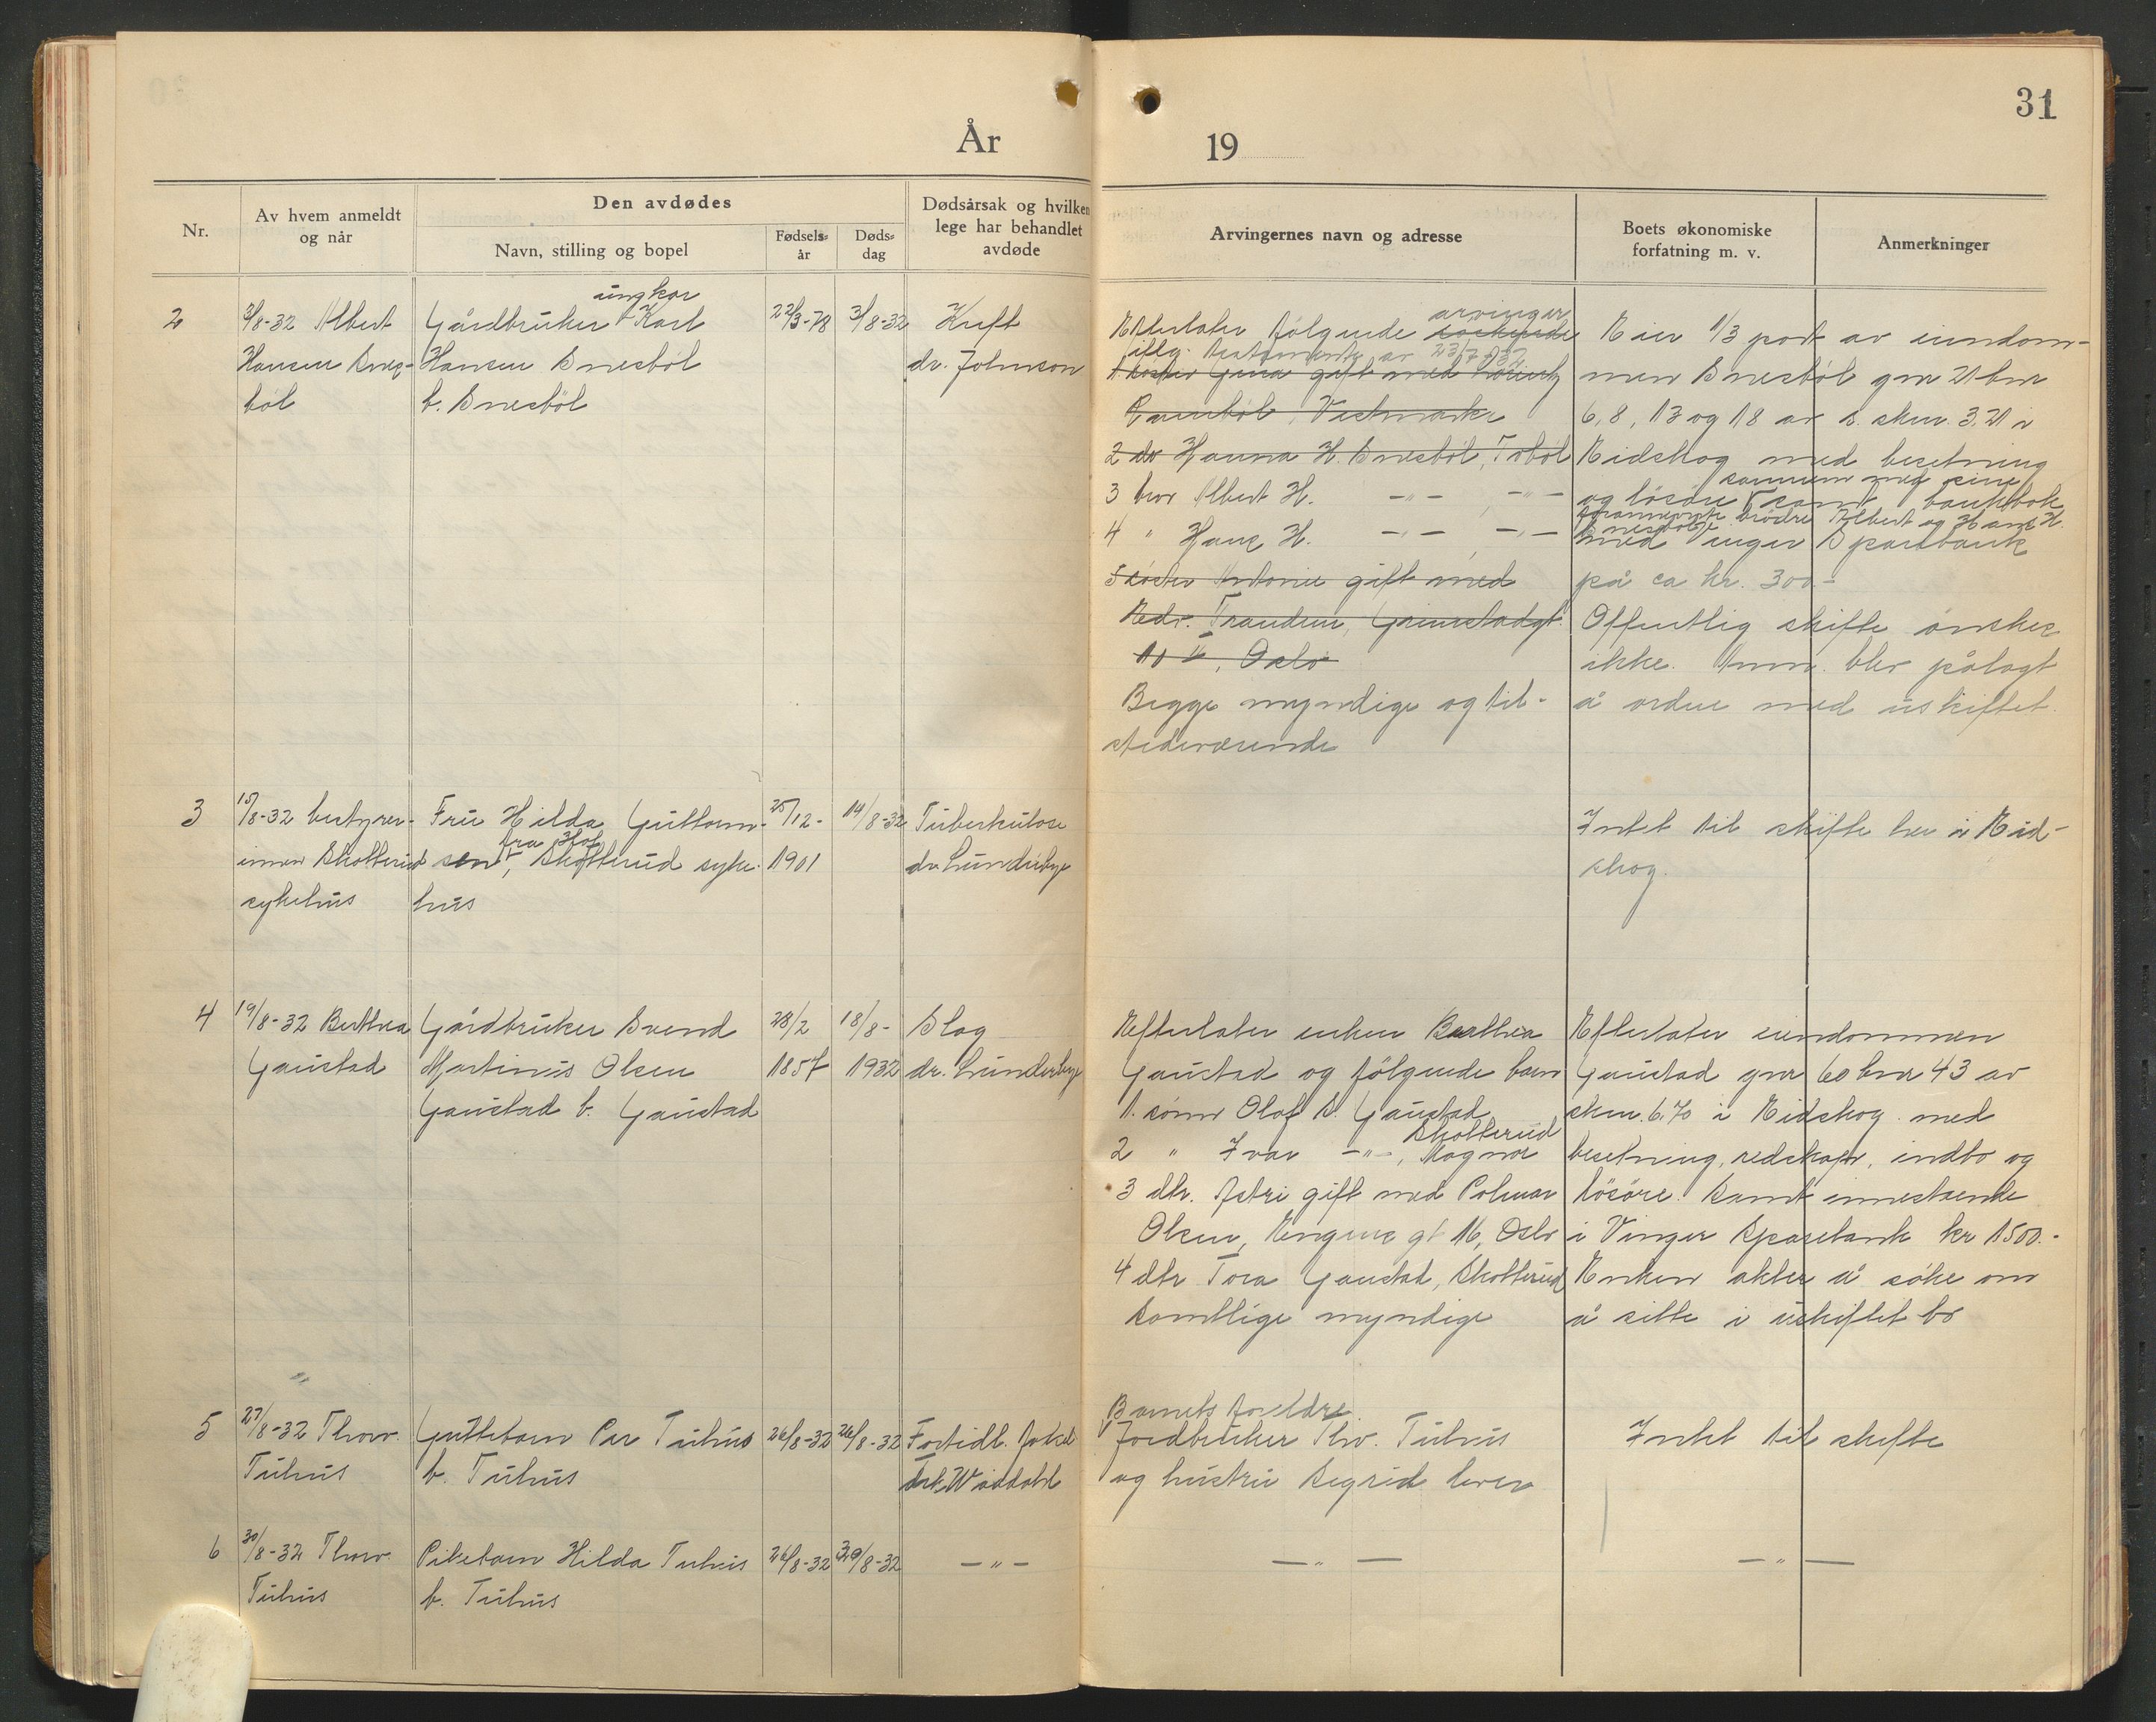 31
År 19
Nr.
Av hvem anmeldt
og når
Den avdødes
Navn, stilling og bopel
Fødsels-
år
Døds-
dag
Dødsårsak og hvilken
lege har behandlet
avdøde
Arvingernes navn og adresse
Boets økonomiske
forfatning m. v.
Anmerkninger
2
3/8-32 Albert
Hansen Snes-
böl
ungkar
Gårdbruker Karl
Hansen Snesböl
b. Snesböl
22/3-78
3/8-32
Kreft
dr. Johnson
Efterlater følgende søskende arvinger
iflg. testamente av 23/7 1932
1. søster Gina gift med
Vestmarka
2 do Hanna H. Snesböl, Toböl
3 bror Albert H. -"- , -"-
4 " Hans H. -"- , -"-
5 søster Antonie gift med
Fredr. Tranden, Grimstadgt.
10 II, Oslo
Begge myndige og til-
stedeværende
Eier 1/3 part av eiendom-
men Snesböl gnr 21 bnr
6, 8, 13 og 18 av s. skm. 3,21 i
Eidskog med besetning
og løsøre sammen med sine
forannevnte brödre Albert og Hans H.
Snesböl samt bankbok
med Vinger Sparebank
på ca kr. 300-
Offentlig skifte ønskes
ikke. Anm. blev pålagt
å ordne med uskiftet.
3
15/8-32 bestyrer-
innen Skotterud
sykehus
Fru Hilda Guttorm-
sen fra Hof, Skotterud syke-
hus
25/12-
1901
14/8-32
Tuberkulose
dr. Lunderbye
Intet til skifte her i Eid-
skog.
4
19/8-32 Berthea
Gaustad
Gårdbruker Svend
Martinus Olsen
Gaustad b. Gaustad
28/2
1857
18/8-
1932
Slag
dr. Lunderbye
Efterlater enken Berthea
Gaustad og følgende barn
1. sønn Olaf S. Gaustad
2 " Ivar -"- , Skotterud Magnor
3 dtr. Astri gift med Polmar
Olsen, Engens gt 16, Oslo
4 dtr Tora Gaustad, Skotterud
Samtlige myndige
Efterlater eiendommen
Gaustad gnr 60 bnr 43 av
skm. 6.70 i Eidskog med
besetning, redskap, indbo og
løsøre. Samt innestaende
i Vinger Sparebank kr 1500.-
Enken akter å søke om
å sitte i uskiftet bo
5
27/8-32 Thorv.
Tuhus
Guttebarn Per Tuhus
b. Tuhus
26/8-32
26/8-32
Fortidl. født
Barnets foreldre
Jordbruker Thv. Tuhus
og hustru Sigrid lever
Intet til skifte
6
30/8-32 Thorv.
Tuhus
Pikebarn Hilda Tuhus
b. Tuhus
26/8-32
29/8-32
-"-
-"-
-"-